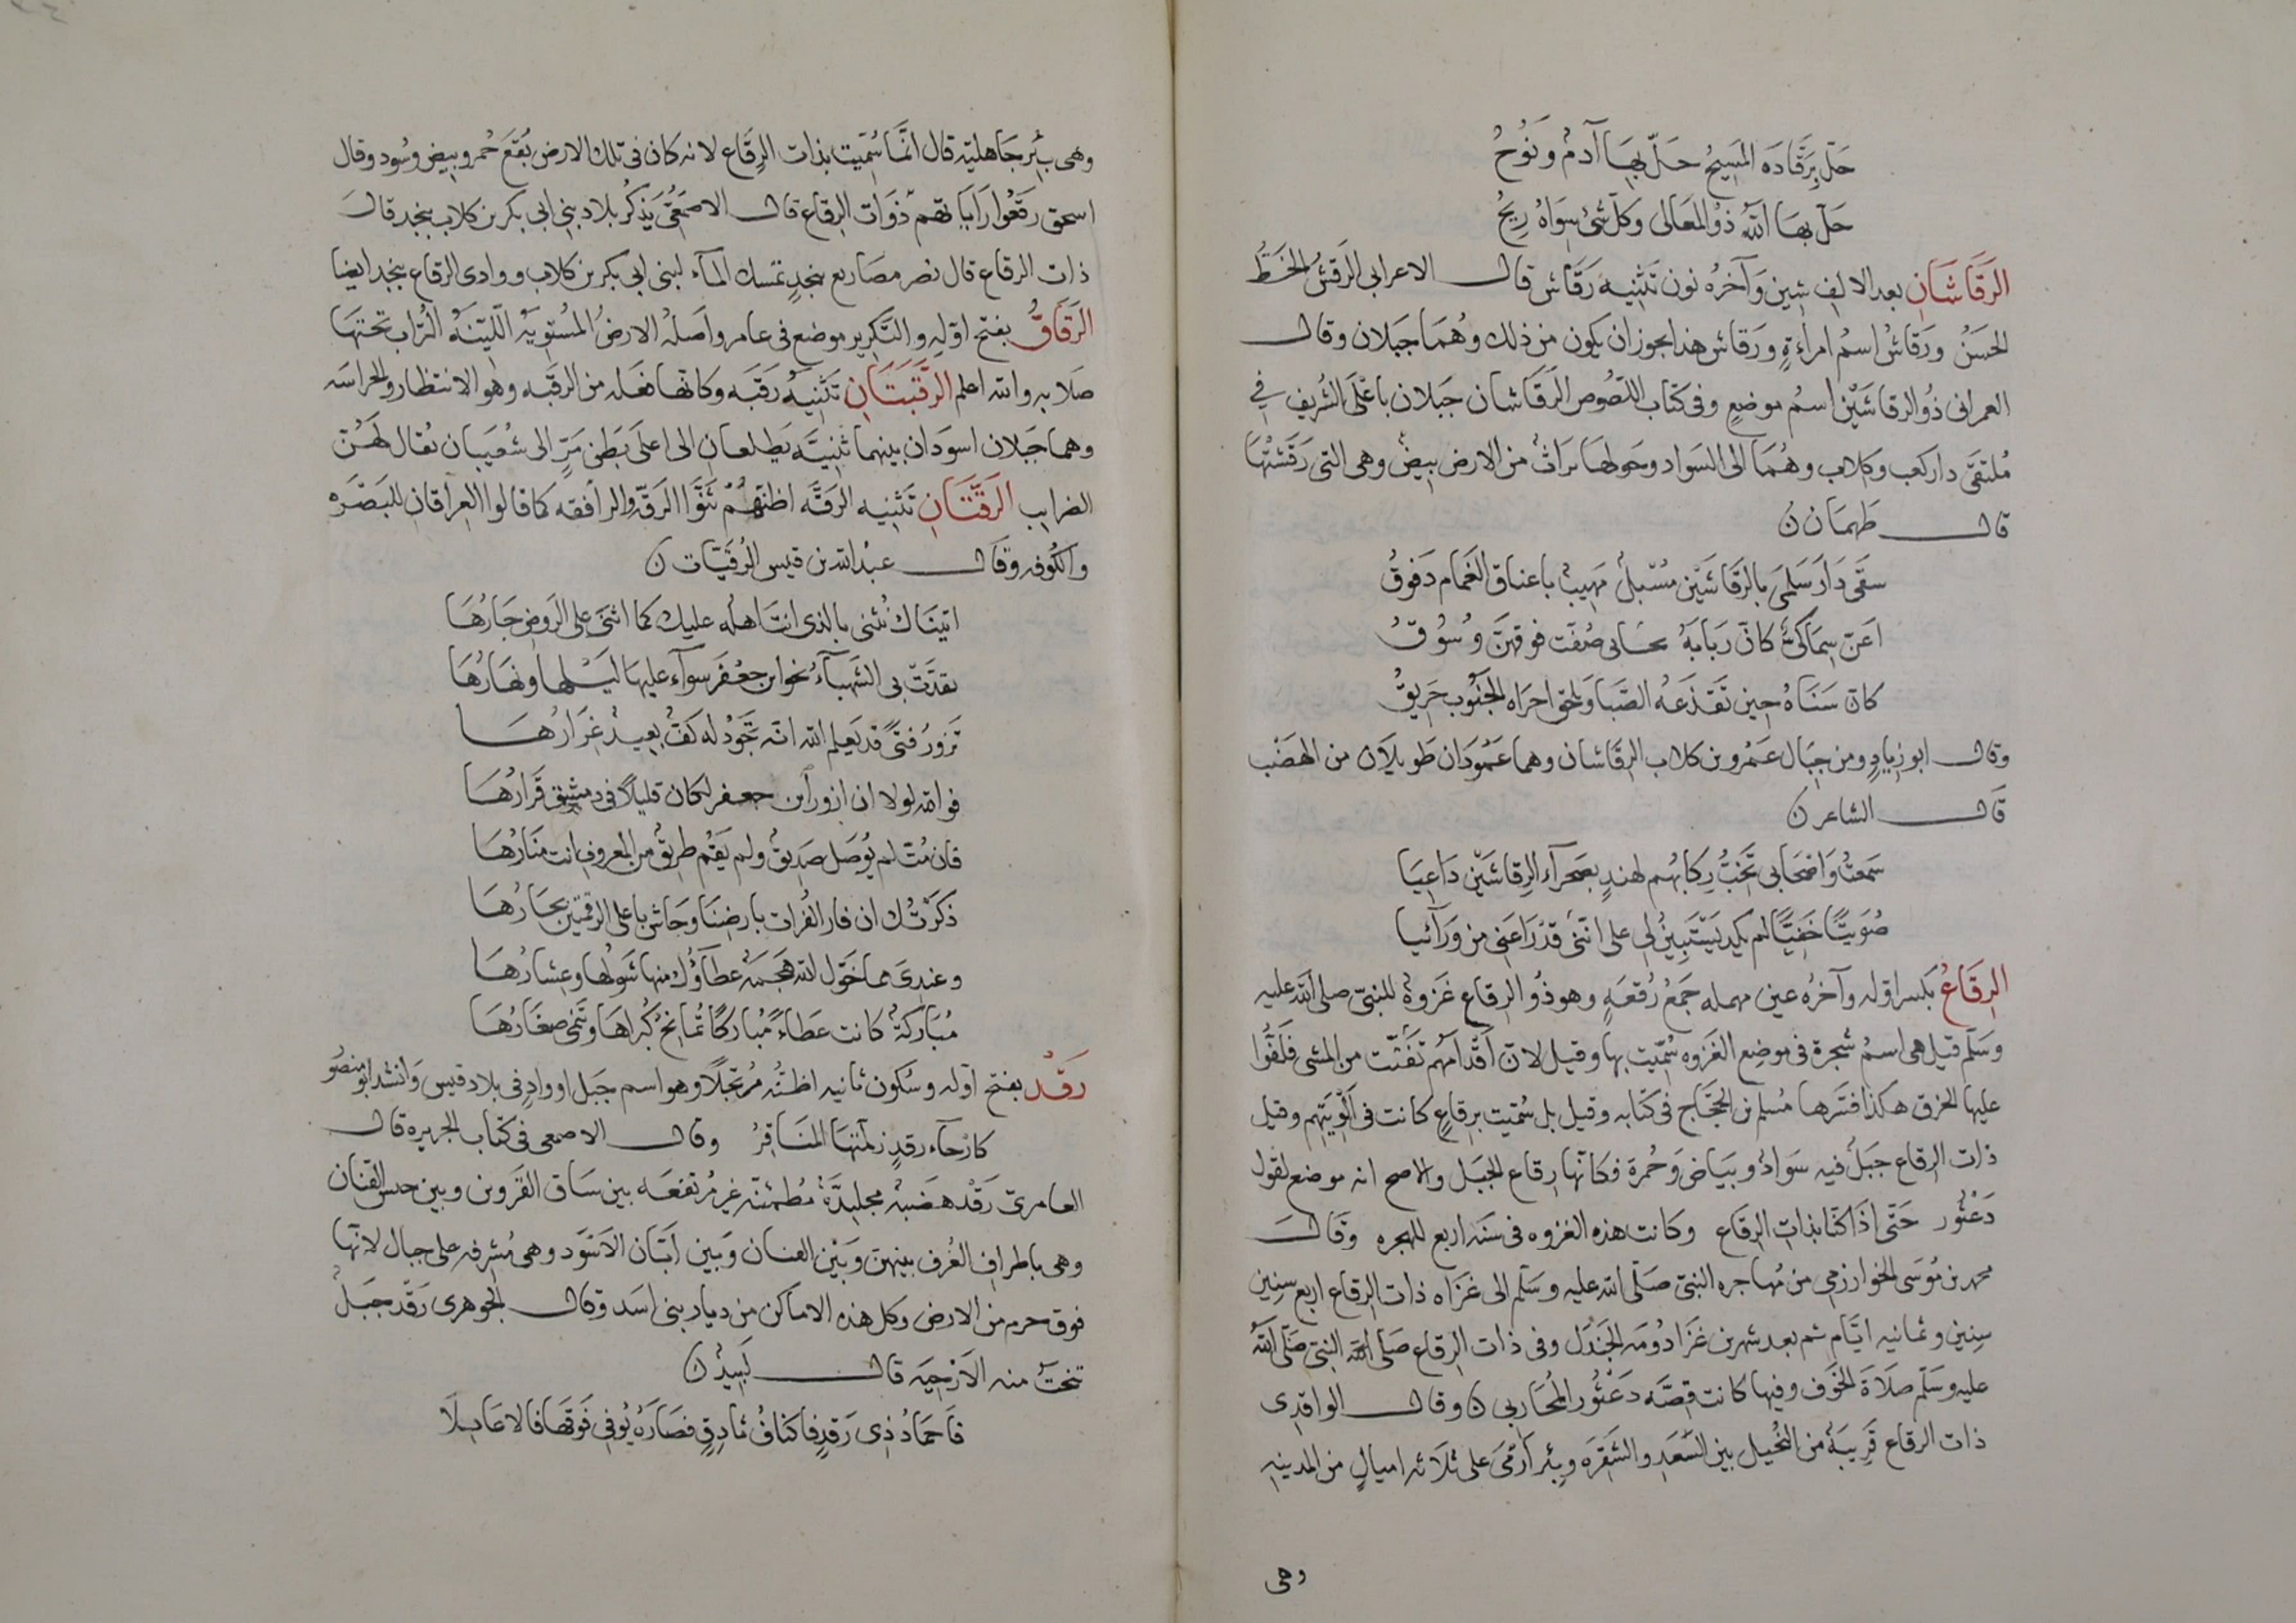 حَلّ بِرَقّادَه المَسِيحُ حَلّ بِهَا آدمُ وَنُوحُ
حَلّ بهَا اللهُ ذوُ المَعَالى وَكلّ شئ سِوَاهُ رِيحُ
الرَقَاشَانِ بعد الالِفِ شِين وَآخرُه نون تَثنِيه رَقَاش قال الاعرابى الرَقشُ الخَطُّ
الحَسَنُ ورَقاشُ اسمُ امراءةٍ ورَقاش هذا يجوز ان يكون من ذلك وهُمَا جَبَلان وقال
العمرانى ذوُ الرقاشَيْنِ اسمُ موضعٍ وفى كتاب اللصُوص الرَقَاشان جَبَلان باعْلَى الشُرَيفِ في
مُلتقَى دار كعب وكلاب وهُمَا الى السَوَاد وحَولهَا براثٌ من الارض بيضٌ وهى التى رَقَشَتْهَا
قال طَهمَان ن
سقَى دَارَ سَلمَى بالرَقاشَيْنِ مُسْبلٌ مَهِيبٌ باعناقِ الغَمام دَفوقُ
اَغَنّ سِمَاكىٌّ كانّ رَبَابَهُ بخاتى صُفّت فوقهنّ وُسُوقُ
كانّ سَنَاهُ حِين تَقذعَهُ الصَبا وَتلحق اخراه الجَنُوب حَرِيقُ
وقال ابو زيادٍ ومن جبَال عَمْرو بن كلاب الرقَاشان وهما عَمُودَان طَويلَان من الهَضْب
قَال الشاعر ن
سَمعتُ وَاصْحَابى تَخُبُّ رِكابُهُم لهندٍ بصَحراء الرقاشَيْنِ دَاعِيَا
صُوَيتًا خَفِيًّا لم يكد يَسْتَبِينُ لى على انّنى قدْ رَاعَنى من وَرَآئيا
الرِقَاعُ بكسر اوّله وآخرُه عين مهمله جَمعُ رُقعَةٍ وهو ذوُ الرِقاع غَزوةٌ للنبىّ صلى الله عليه
وسَلّم قيل هى اسمُ شجرة فى موضع الغَزوه سُمّيت بها وقيل لانّ اَقدامَهُم نَقَبَت من المشى فلَفُّوا
عليها الخرق هكذا فسَرها مُسلم بن الحَجّاج فى كتابه وقيل بل سُمّيت برقاعٍ كانت فى اَلْوِيَتِهم وقيل
ذات الرقاع جَبَلٌ فيه سَوَادٌ وبَيَاض وَحُمرة فكانّها رقاع الجَبَل والاصح انه موضع لقول
دَعْثُور حَتّى اذَا كنّا بذات الرِقاع وكانت هذه الغزوه فى سَنَة اربع للهجره وقال
محمد بن مُوسَى الخوارزمى من مُهاجره النبىّ صَلّى الله عليه وسَلّم الى غزَاه ذات الرِقاع اربع سِنِين
سنِين وثمانيه ايّام ثم بعد شهرين غَزَا دُومَه الجَنْدَل وفى ذات الرقاع صَلى الله النبىّ صَلّى اللهُ
عليه وسَلّم صَلَاةَ الخَوف وفيها كانت قِصّه دَعْثُور المُحَاربى ن وقال الواقدى
ذات الرقاع قريبَةٌ من النُخيل بين السَّعَدِ والشَقرَه وبئر اَرمَى على ثلاثه اميالٍ من المدينه
وهى
وهى بِئر جَاهليّه قال انّمَا سُمّيت بذات الرِقَاع لانه كان فى تلك الارض بُقَع حُمر وبيض وسُود وقال
اسحق رقعُوا رَايَاتهم ذوَات الرِقاع قال الاصمَعىّ يَذكرُ بلاد بنى ابى بكر بن كلاب بنجد قال
ذات الرقاع قال نصر مصَاريع بنجدٍ تمسك المآء لبنى ابى بكر بن كلاب ووادى الرقاع بنجد ايضا
الرَقَاقُ بفتح اوّله والتَكرير موضع فى عامر واَصلهُ الارضُ المُستويَه اللّيّنَهُ التُراب تحتهَا
صَلابه والله اعلم الرَّقَبَتَانِ تَثنِيهُ رَقَبَه وكانّها فَعَله من الرقبه وهو الانتظار والحراسَه
وهما جَبلان اسوَدان بينهما ثنِيّه يَطلعان الى اعلَى بَطن مَرّ الى شُعَيبَان يُقال لهُنّ
الضرايب الرَقّتَانِ تَثنيه الرَقّه اظنّهُم ثَنَّوا الرَقّه والرافقه كما قالوا العِراقانِ للبَصْرَه
والكُوفه وقَال عبدُ الله بن قيس الرُقَيّات ن
اتينَاك نُثنى بالذى انتَ اهله عليك كما اثنى على الرَوض جَارُهَا
تقدّتْ بى الشَهبآءُ نحو ابن جعفر سوآء عليهَا لَيْلها ونهارُهَا
تزورُ فتىً قد يَعلم الله انّه تَجوُد له كفّ بعيدٌ غِرَارُهَا
فوالله لولا ان ازور اَبن جعفر لكان قليلاً فى دمشق قَرَارُهَا
فان مُتّ لم يُوصَل صَديقٌ ولم يَقم طريقٌ من المعروف انت منَارُهَا
ذكَرْتُك ان فاز الفُرات بارضِنَا وجَاش باعلى الرقتين بحَارُهَا
وعندِىَ مما خَوّل الله هَجمَةٌ عطآؤك منها شَولها وعِشارُهَا
مُبَاركةٌ كانت عطاءً مُبَاركًا تُمانحُ كُبراهَا وتَنمى صغَارُهَا
رَقَدْ بفتح اوّله وسُكون ثانيه اظنّهُ مُرتجَلاً وهو اسم جبَل او وادٍ فى بلاد قيس وَانشد ابو منصُور
كارحآء رقدٍ زلمتهَا المنَاقرُ وقال الاصمعى فى كتاب الجزيره قال
العامرىّ رَقدٌ هضَبةٌ مجليدَّةٌ مُطمئنّه غير مُرتفعَه بين سَاق القَروين وبين القنان
وهى باطرافِ العُرف بينهنّ وبَيْن القنان وَبَين اَبَان الاَسْوَد وهى مُشرفه على جبال لانّها
فوق حرم من الارض وكل هذه الاماكن من ديار بنى اسَد وقال الجوهرى رَقدُ جبَلٌ
تنحتُ منه الاَرْحِيَه قال لَبِيدٌ ن
فَاَجمَادُ ذِى رَقدٍ فاكنافُ ثادِقٍ فصَارَهُ يُوفى فَوقَهَا فالاعَابِلَا